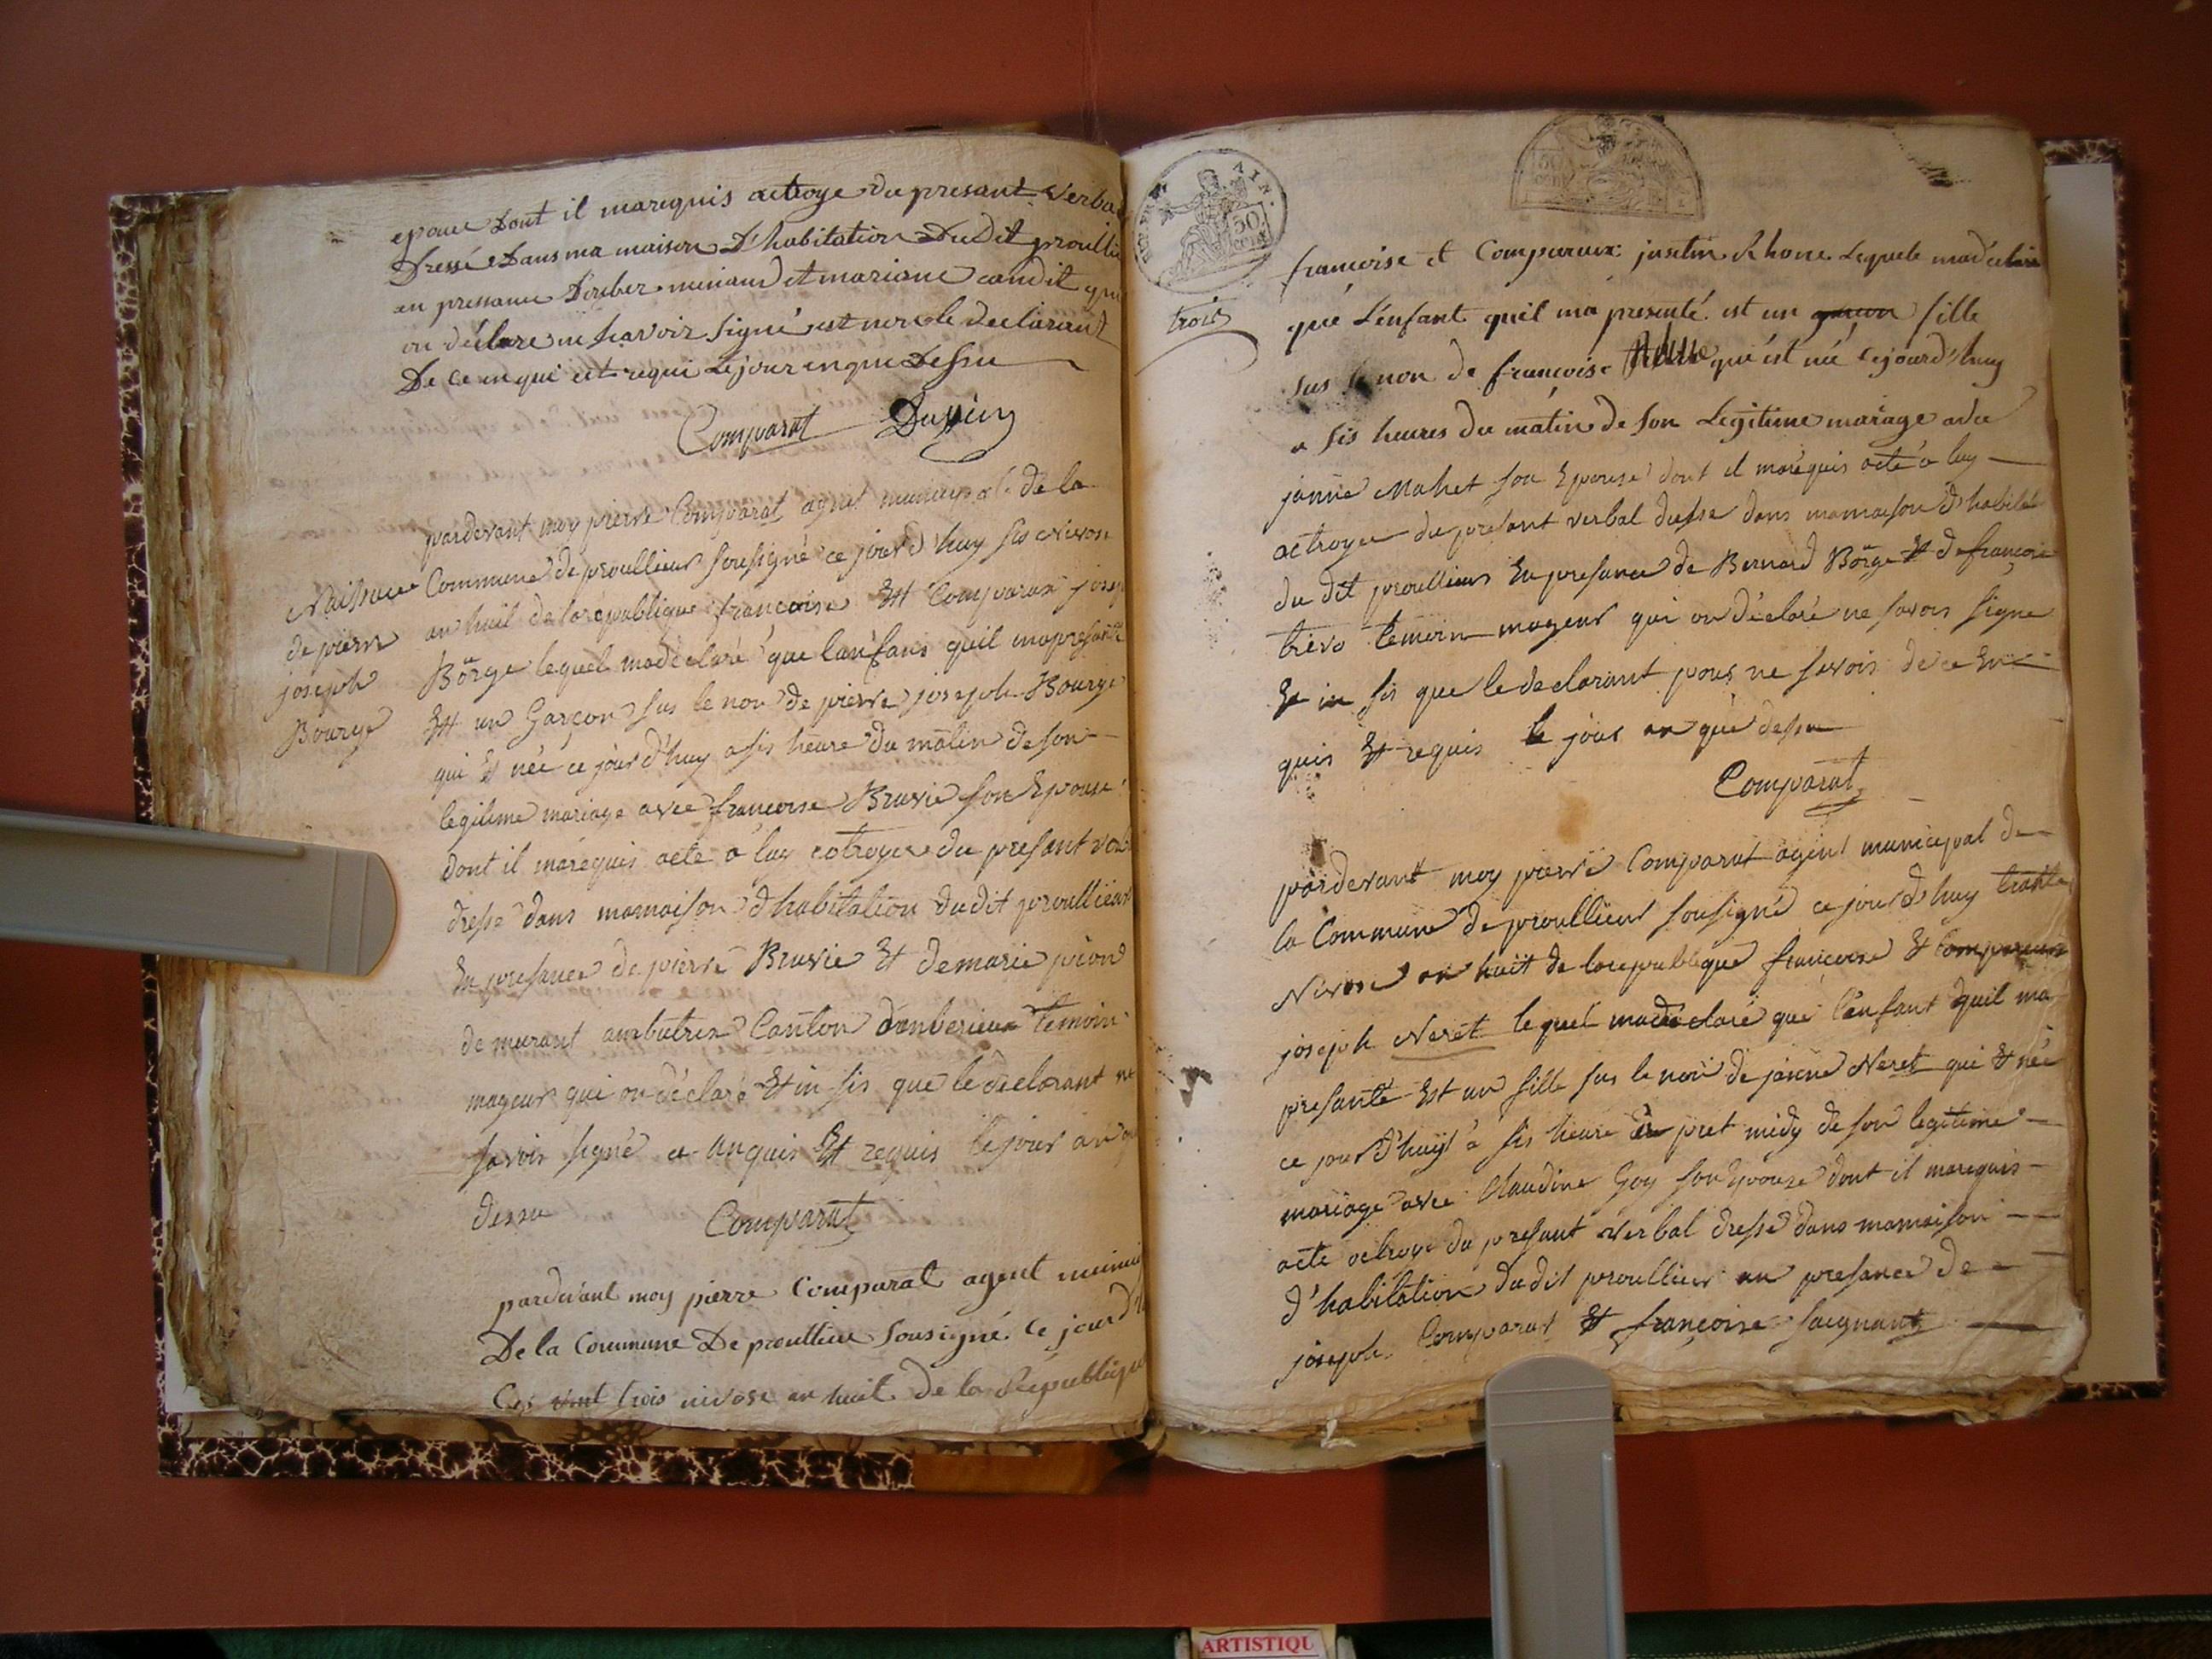 epouse Dont il marequis actroye du presant verba
Dressé Dans ma maison D'habitation Dudit proullie
en presance et mariane candit qui
on déclare ne savoir signé est non le declarant
De ce enqui est requi Le jour en que Dessu
Comparat
pardevant moy pierre Comparat agent municipale de la
Commune de proullieur sousigné ce jour d'huy sis nivose
an huit de la republique françoise Est Comparux josep
Börge lequel madeclaré que lanfans quil mapresanté
Est un Garçon sus le non de pierre joseph Bourge
qui Et née ce jour d'huy a sis heure du matin de son
legitime mariage avec francoise Bruvie son Epouse
dont il marequis acte a luy otroyer du presant verb
dresse dans mamaison d'habitation dudit proullieur
En presance de pierre Bruvie Et demarie pion
demurant ambutrix Canton d'anberieux temoin
mageur qui on déclaré Et in sis que le declarant ne
savoir signé anquis Et requis le jour an que
dessu
Comparat
Naissance
de pierre
joseph
Bourge
pardevant moy pierre Comparat agent munici
De la Commune De proullieu sousigné. Ce jour d'h
vint trois nivose an huit De la Republique
50 cent
AIN.
50 cent
trois
francoise et Comparaux justin Rhone Lequele madeclare
que L'enfant quil ma presenté est un garcon fille
sus le non de francoise que est née cejourd'huy
a sis heures du matin de son Legitime mariage avec
janne Mahet son Epouse dont il marequis acte a luy
actroyer du presant verbal dresse dans mamaison d'habitat
du dit proullieur En presance de Bernard Börge Et de francois
trevo temoin mageur qui on déclaré ne savoir signe
Et in sis que le declarant pour ne savoir de ce En
quis Et requis le jour an que dessu
Comparat
pardevant moy pierre Comparat agent municipal de
la Commune de proullieur sousigné ce jour d'huy trante
Nivose an huit de la republique francoise Et Comparaux
joseph Neret lequel madéclaré que l'enfant quil ma
presanté Est un fille sus le non de janne Neret qui Et née
ce jour d'huy a sis heure a pret midy de son legitime
mariage avec Claudine Goy son Epouze dont il marequis
acte octroye du presant verbal dresse dans mamaison
d'habitation dudit proullieur an presance de
joseph Comparat Et françoise
ARTISTIQU